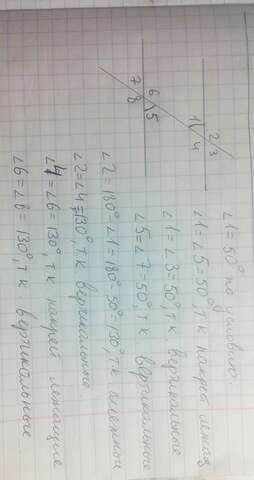 ∠1 = 50° по условию
∠1 = ∠5 = 50°, т.к накрест лежащ
∠1 = ∠3 = 50°, т.к. вертикальные
∠5 = ∠7 = 50°, т.к вертикальные
∠2 = 180° - ∠1 = 180° - 50° = 130°, т.к.
∠2 = ∠4 = 130°, т.к вертикальные
∠4 = ∠6 = 130°, т.к накрест лежащие
∠6 = ∠8 = 130°, т.к вертикальные
2 3
1 4
6 5
7 8